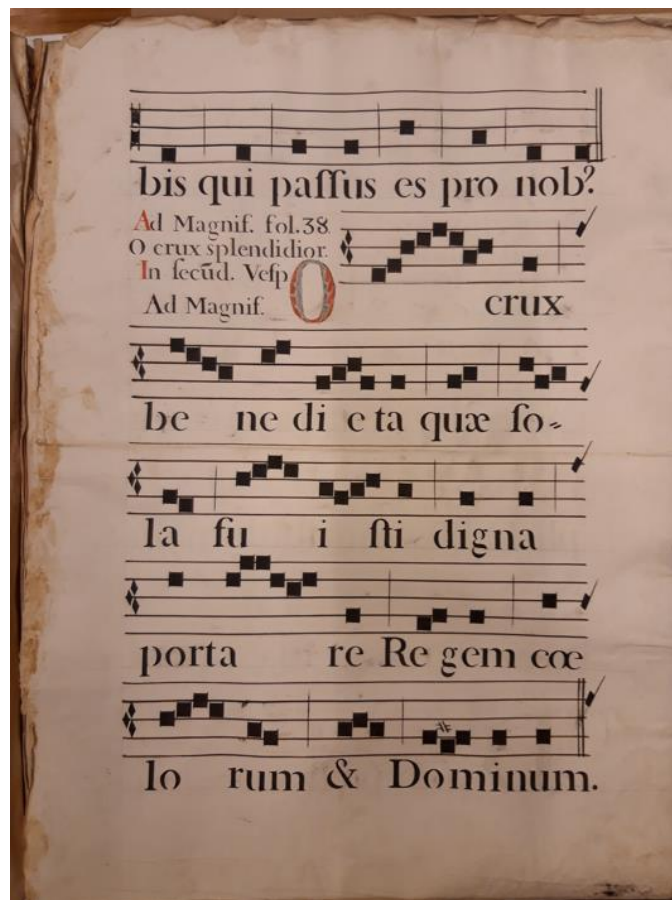 bis qui paſſus es pro nob?
Ad Magnif. fol.38
O crux splendidior.
In ſecūd. Veſp
Ad Magnif.
O crux
be ne di cta quæ ſo-
la fu i ſti digna
porta re Regem cœ
lo rum & Dominum.